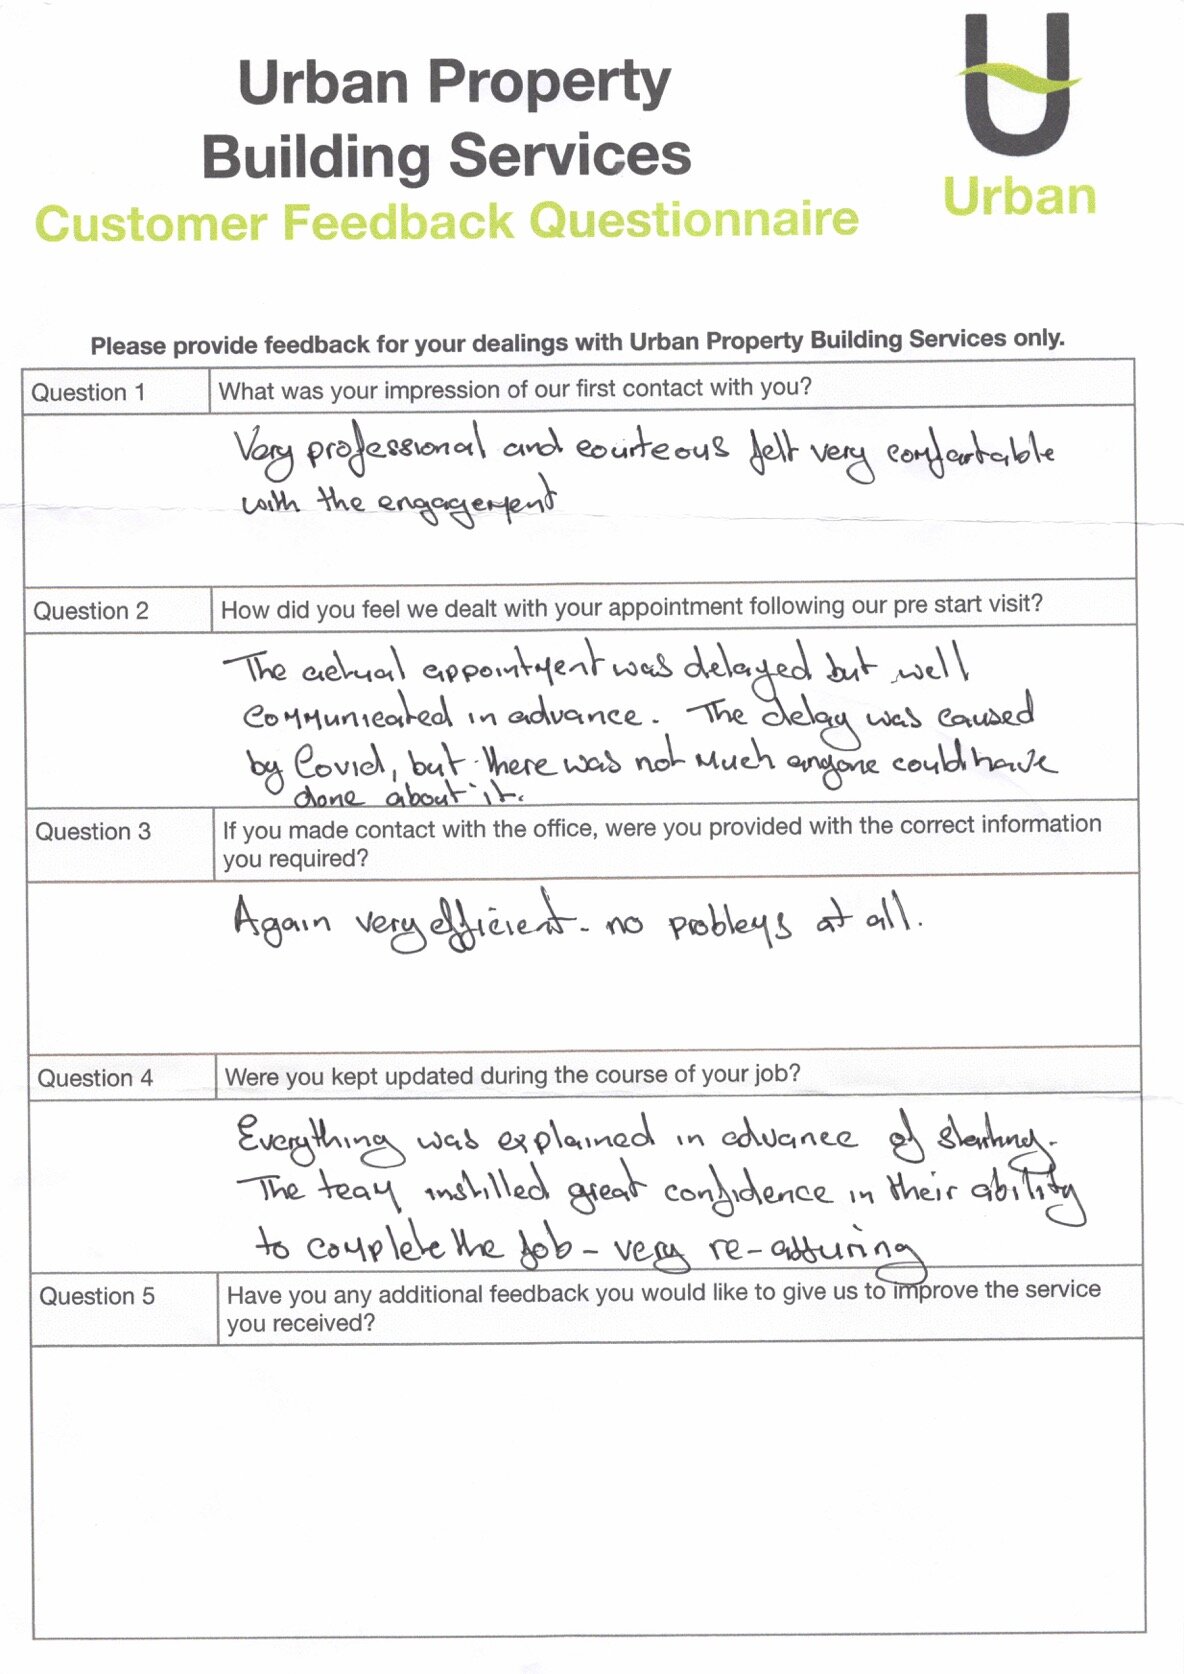 Urban Property
Building Services
Customer Feedback Questionnaire
Urban
Please provide feedback for your dealings with Urban Property Building Services only.
Question 1
What was your impression of our first contact with you?
Very professional and courteous felt very comfortable
with the engagement
Question 2
How did you feel we dealt with your appointment following our pre start visit?
The actual appointment was delayed but well
communicated in advance. The delay was caused
by Covid, but there was not much anyone could have
done about it.
Question 3
If you made contact with the office, were you provided with the correct information
you required?
Again very efficient - no problems at all.
Question 4
Were you kept updated during the course of your job?
Everything was explained in advance of starting.
The team instilled great confidence in their ability
to complete the job - very re-assuring
Question 5
Have you any additional feedback you would like to give us to improve the service
you received?